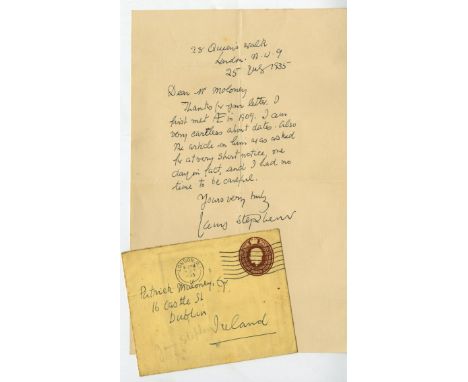 28 Queen's Walk
London. N.W. 9
25 July 1935
Dear Mr Moloney
Thanks for your letter. I
first met Æ in 1909. I am
very careless about dates. Also
the article on him was asked
for at very short notice, one
day in fact, and I had no
time to be careful.
Yours very truly
James Stephens
LONDON
Patrick Moloney, Esq
16 Castle St
Dublin
Ireland